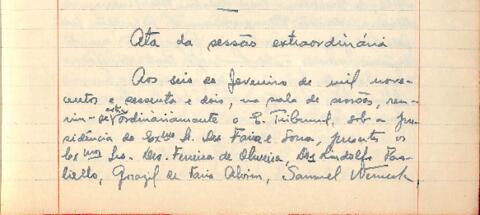 Ata da sessão extraordinária
Aos seis de fevereiro de mil nove-
centos e sessenta e dois, na sala de sessões, reu-
niu-se extraordinariamente o E. Tribunal, sob a pre-
sidência do Exmo. Sr. Des. Faria e Sousa, presentes os
Exmos Srs. Des. Ferreira de Oliveira, Des. Rodolfo Pas-
, Gorazil de Faria Alvim, Samuel Werneck,